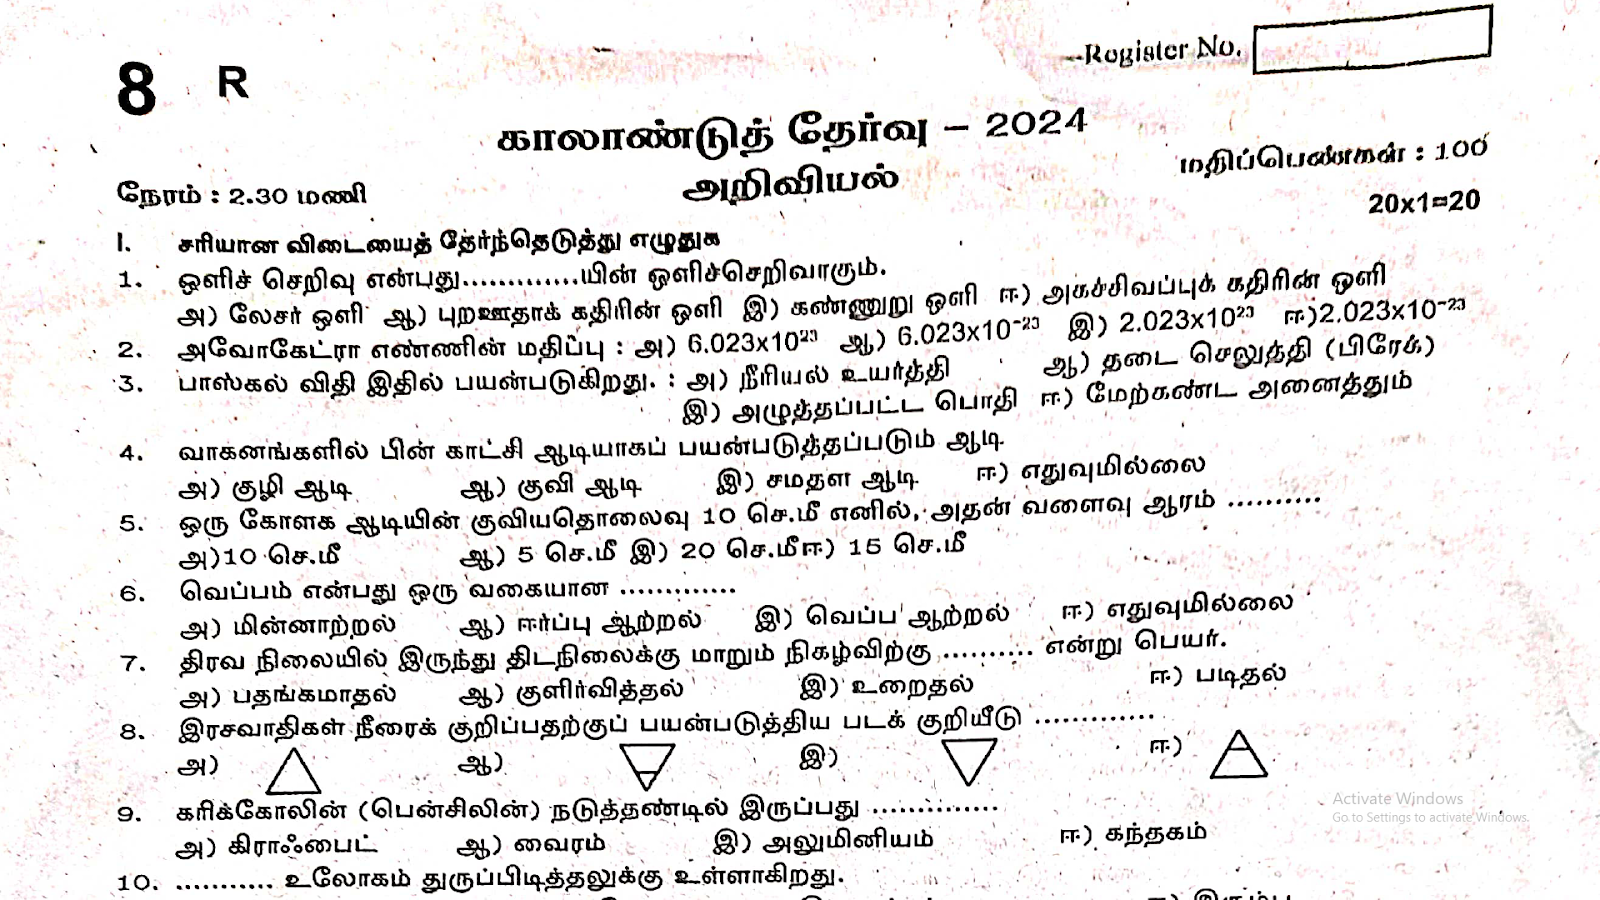 Register No.
8 R
காலாண்டுத் தேர்வு – 2024
அறிவியல்
மதிப்பெண்கள் : 100
நேரம் : 2.30 மணி
20x1=20
I. சரியான விடையைத் தேர்ந்தெடுத்து எழுதுக
1. ஒளிச் செறிவு என்பது.............யின் ஒளிச்செறிவாகும்.
அ) லேசர் ஒளி ஆ) புறஊதாக் கதிரின் ஒளி இ) கண்ணுறு ஒளி ஈ) அகச்சிவப்புக் கதிரின் ஒளி
2. அவோகேட்ரா எண்ணின் மதிப்பு : அ) 6.023x10²³ ஆ) 6.023x10⁻²³ இ) 2.023x10²³ ஈ)2.023x10⁻²³
3. பாஸ்கல் விதி இதில் பயன்படுகிறது. : அ) நீரியல் உயர்த்தி ஆ) தடை செலுத்தி (பிரேக்)
இ) அழுத்தப்பட்ட பொதி ஈ) மேற்கண்ட அனைத்தும்
4. வாகனங்களில் பின் காட்சி ஆடியாகப் பயன்படுத்தப்படும் ஆடி
அ) குழி ஆடி ஆ) குவி ஆடி இ) சமதள ஆடி ஈ) எதுவுமில்லை
5. ஒரு கோளக ஆடியின் குவியதொலைவு 10 செ.மீ எனில், அதன் வளைவு ஆரம் ..........
அ)10 செ.மீ ஆ) 5 செ.மீ இ) 20 செ.மீ ஈ) 15 செ.மீ
6. வெப்பம் என்பது ஒரு வகையான .............
அ) மின்னாற்றல் ஆ) ஈர்ப்பு ஆற்றல் இ) வெப்ப ஆற்றல் ஈ) எதுவுமில்லை
7. திரவ நிலையில் இருந்து திடநிலைக்கு மாறும் நிகழ்விற்கு .......... என்று பெயர்.
அ) பதங்கமாதல் ஆ) குளிர்வித்தல் இ) உறைதல் ஈ) படிதல்
8. இரசவாதிகள் நீரைக் குறிப்பதற்குப் பயன்படுத்திய படக் குறியீடு .............
அ) ஆ) இ) ஈ)
9. கரிக்கோலின் (பென்சிலின்) நடுத்தண்டில் இருப்பது ..............
அ) கிராஃபைட் ஆ) வைரம் இ) அலுமினியம் ஈ) கந்தகம்
10. ........... உலோகம் துருப்பிடித்தலுக்கு உள்ளாகிறது.
Activate Windows
Go to Settings to activate Windows.